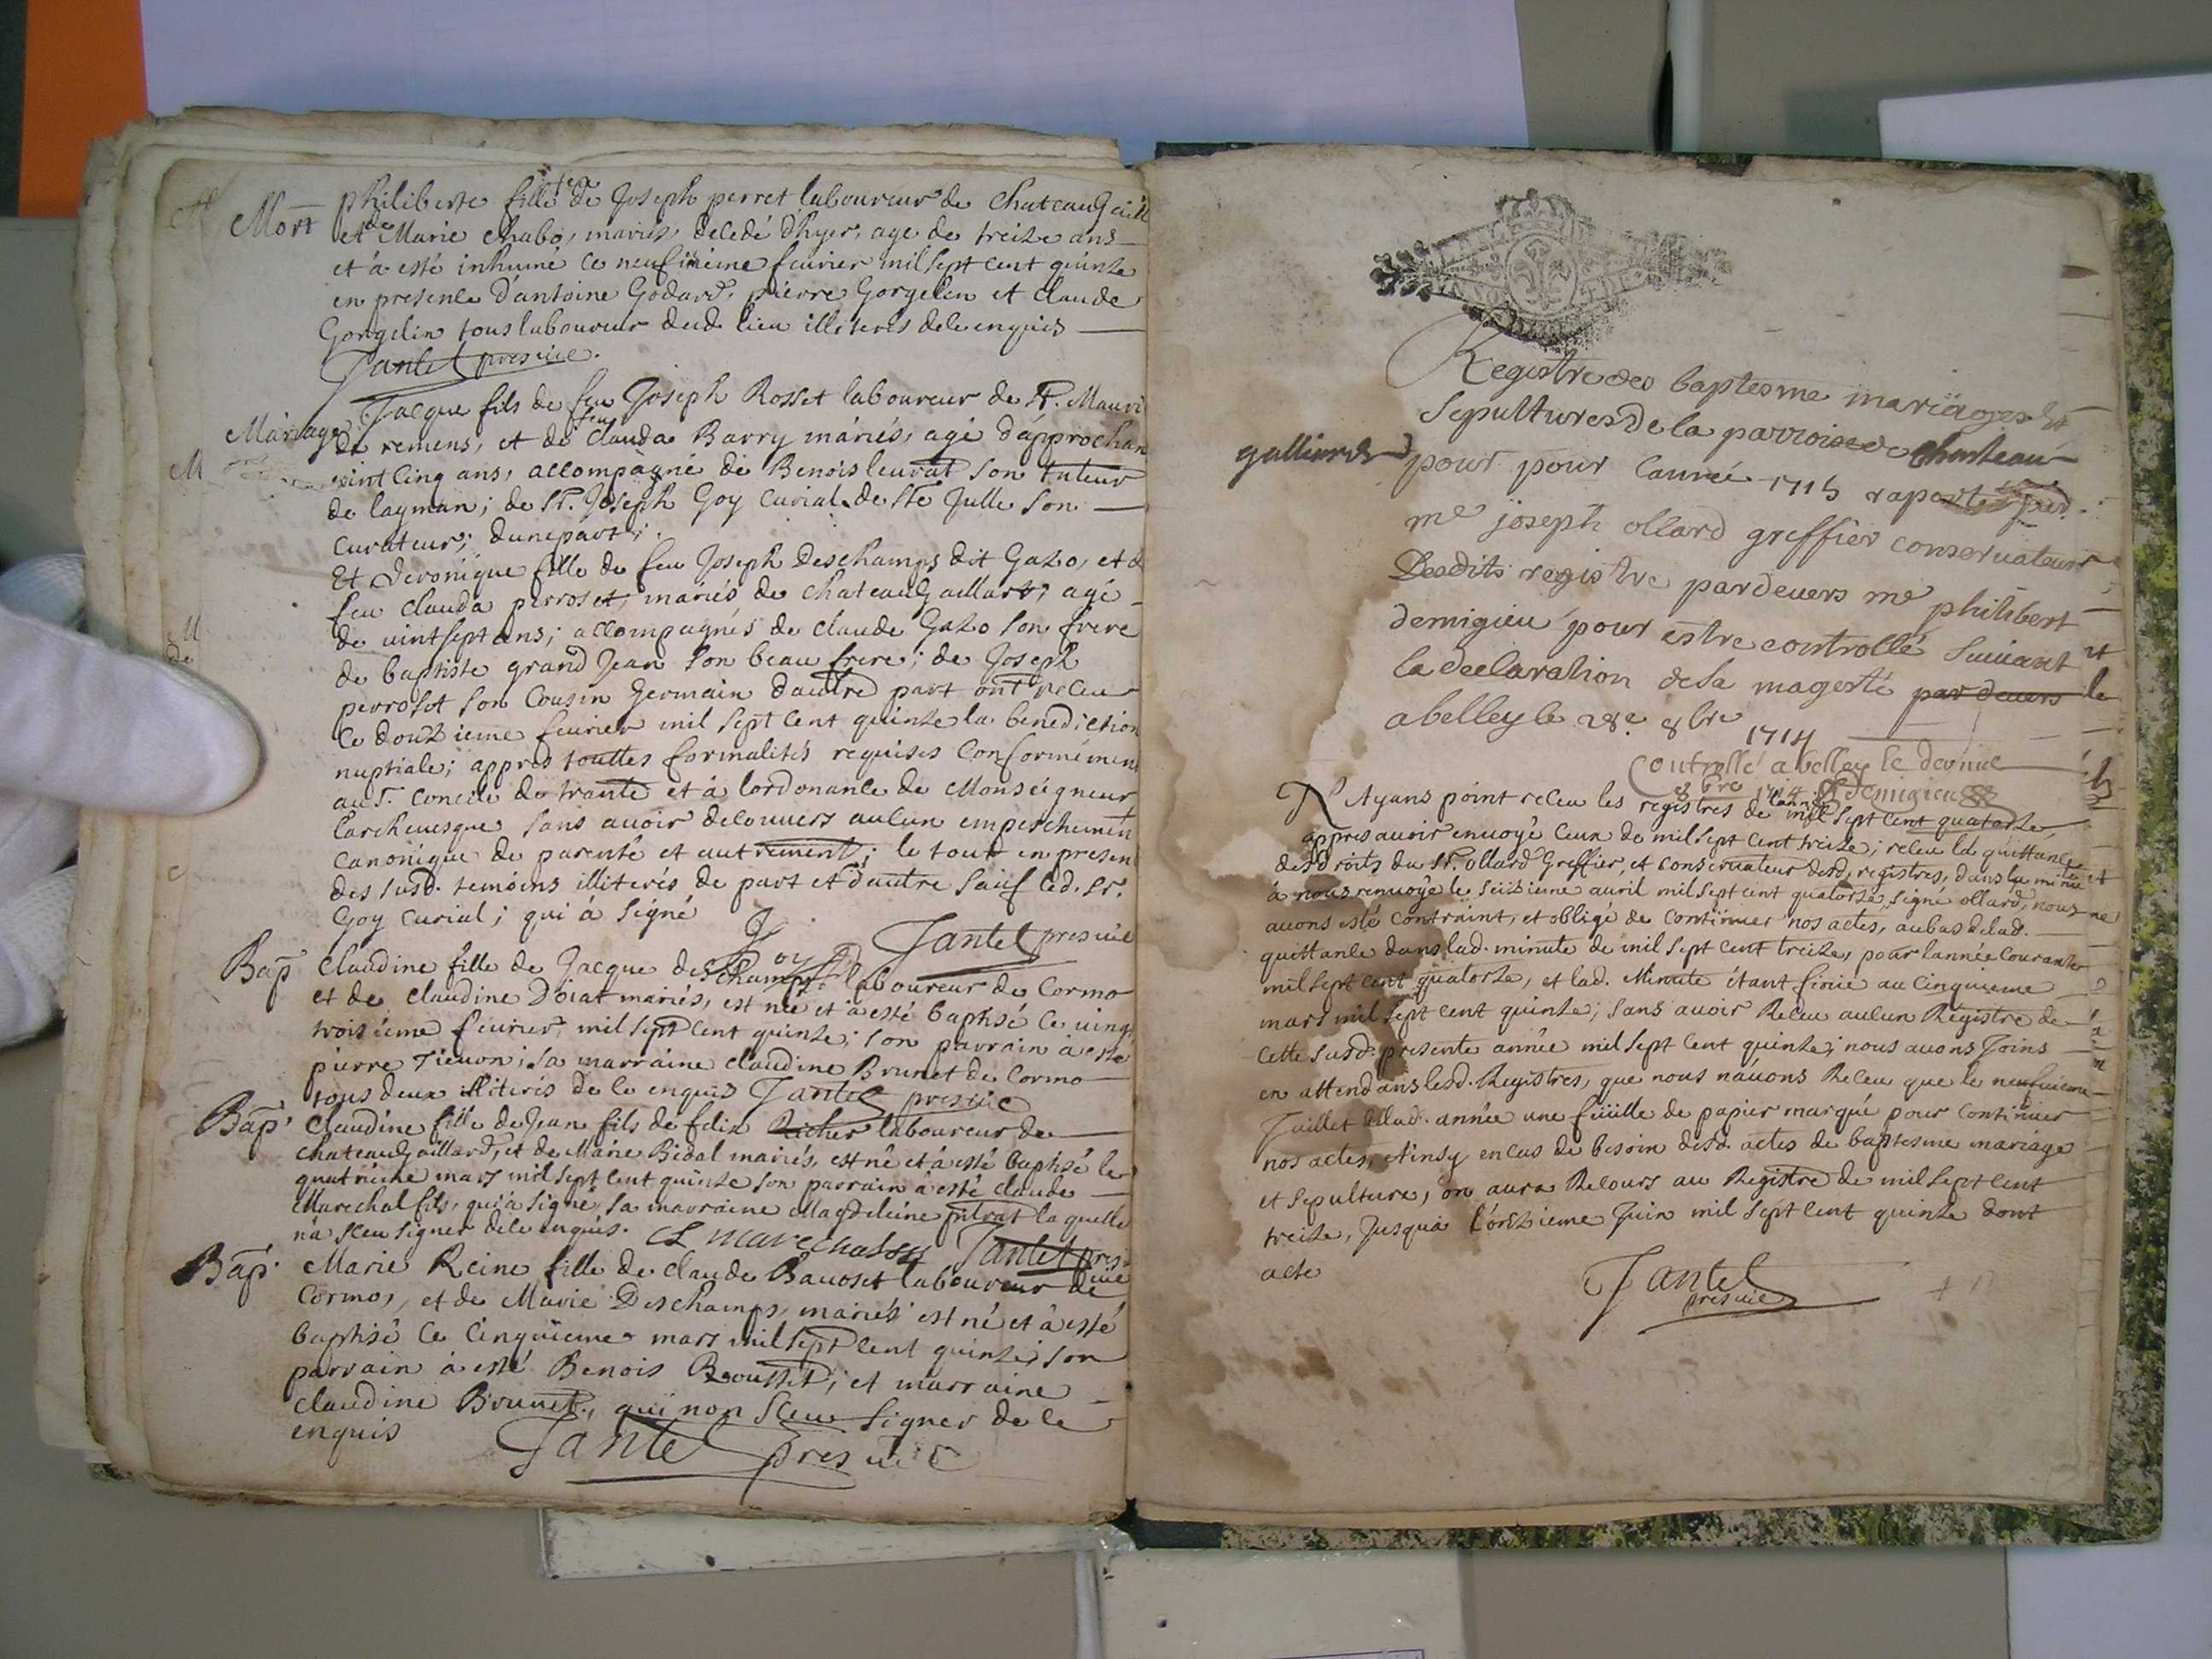 Mort
philiberte fille de Joseph perret laboureur de Chateaugaill
et de Marie Chabo, mariés, decedé d'hyer, age de treize ans
et à esté inhumé ce neufvieme feurier mil sept cent quinze
en presence d'antoine Godard, pierre Gorgelin et claude
Gorgelin tous laboureur dud. lieu illiterés de ce enquis
Jantet presvic.
Mariage
Jacque fils de feu Joseph Rosset laboureur de St. Mauri
de remens, et de feu Clauda Barry mariés, agé d'approchan
vint cinq ans, accompagné de Benois leurat son tuteur
de layman; de Sr. Joseph Goy curial de Ste Julle son
curateur; dunepart;
Et Veronique fille de feu Joseph Deschamps dit Gazo, et d
feu Clauda perroset, mariés de Chateaugaillard, agé
de vint sept ans; accompagnés de claude Gazo son frere
de baptiste grand Jean son beau frere; de Joseph
perroset son Cousin germain dautre part ont receu
ce douzieme feurier mil sept cent quinze la benediction
nuptiale; appres touttes formalités requises Conformémen
au St. Concile de trante et à lordonance de Monseigneur
larcheuesque sans auoir decouuers aucun empeschement
canonique de parenté et autrement; le tout en presen
des susd. temoins illiterés de part et dautre sauf led. Sr.
Goy curial; qui à signé
Goy Jantet presvic
Bap
Claudine fille de Jacque deschamps laboureur de Cormo
et de Claudine Doiat mariés, est née et à esté baptisé ce uing
troisieme feurier mil sept cent quinze; son parrain à esté
pierre Tieuon; sa marraine Claudine Brunet de Cormo
tous deux illiterés de ce enquis Jantet presvic
Bap
Claudine fille de Jean fils de felix Richer laboureur de
Chateaugaillard, et de Marie Bidal mariés, est né et à esté baptisé le
quatrieme mars mil sept cent quinze son parrain à esté claude
Marechal fils, qui à signé, sa marraine Magdeleine pitrat la quelle
n'a sceu signer de ce enquis. CL marechal Jantet presvic
Bap
Marie Reine fille de claude Bauoset laboureur de
Cormo, et de Marie Deschamps, mariés est né et à esté
baptisé ce cinquieme mars mil sept cent quinze; son
parrain à esté Benois Brousset; et marraine
Claudine Brunet, qui non sceu signer de ce
enquis Jantet presvic
Registre des baptesme mariages Et
Sepultures de la parroisse de Chasteau
galliard pour pour lannée 1715 raporté par
me joseph ollard greffier conseruateur
Desdits registre pardeuers me philibert
demigieu pour estre controllé suiuant
la declaration de sa magesté par deuers
a belley le 28e 8bre 1714
Controllé a belley le dernier
8bre 1714 demigieu
N'Ayans point receu les registres de lannée mil sept cent quatorze,
appres auoir enuoyé ceux de mil sept cent treize; receu la quittance
des droits du Sr. ollard Greffier, et conseruateur desd. registres, dans la minute
à nous renuoyé le seizieme auril mil sept cent quatorze, signé ollard, nous
auons esté contraint, et obligé de continuer nos actes, au bas de lad.
quittance dans lad. minute de mil sept cent treize, pour lannée courante
mil sept cent quatorze, et lad. Minute étant finie au cinquieme
mars mil sept cent quinze; sans auoir Receu aucun Registre de
cette susd. presente année mil sept cent quinze; nous auons Joins
en attendans lesd. Registres, que nous náuons Receu que le neufuieme
Juillet de lad. année une feüille de papier marqué pour continuer
nos actes, Ainsy en cas de besoin desd. actes de baptesme mariage
et sepulture, on aura Recours au Registre de mil sept cent
treize, Jusqua l'onzieme Juin mil sept cent quinze dont
acte
Jantet
presvic